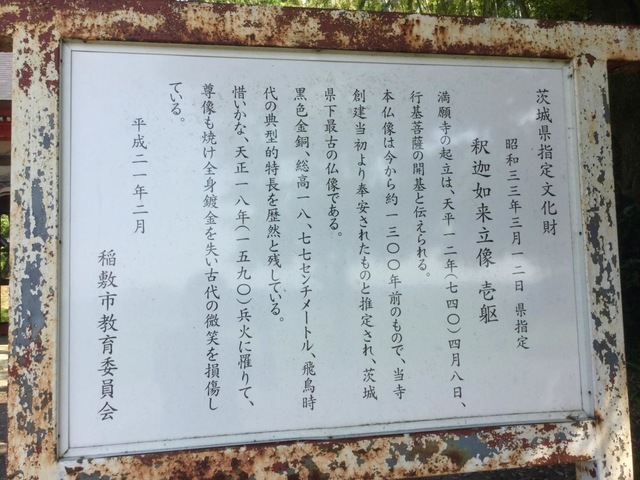 茨城県指定文化財
昭和三三年三月一二日 県指定
釈迦如来立像 壱躯
満願寺の起立は、天平一二年(七四〇)四月八日、
行基菩薩の開基と伝えられる。
本仏像は今から約一三〇〇年前のもので、当寺
創建当初より奉安されたものと推定され、茨城
県下最古の仏像である。
黒色金銅、総高一八、七七センチメートル、飛鳥時
代の典型的特長を歴然と残している。
惜いかな、天正一八年(一五九〇)兵火に罹りて、
尊像も焼け全身鍍金を失い古代の微笑を損傷し
ている。
平成二一年二月
稲敷市教育委員会